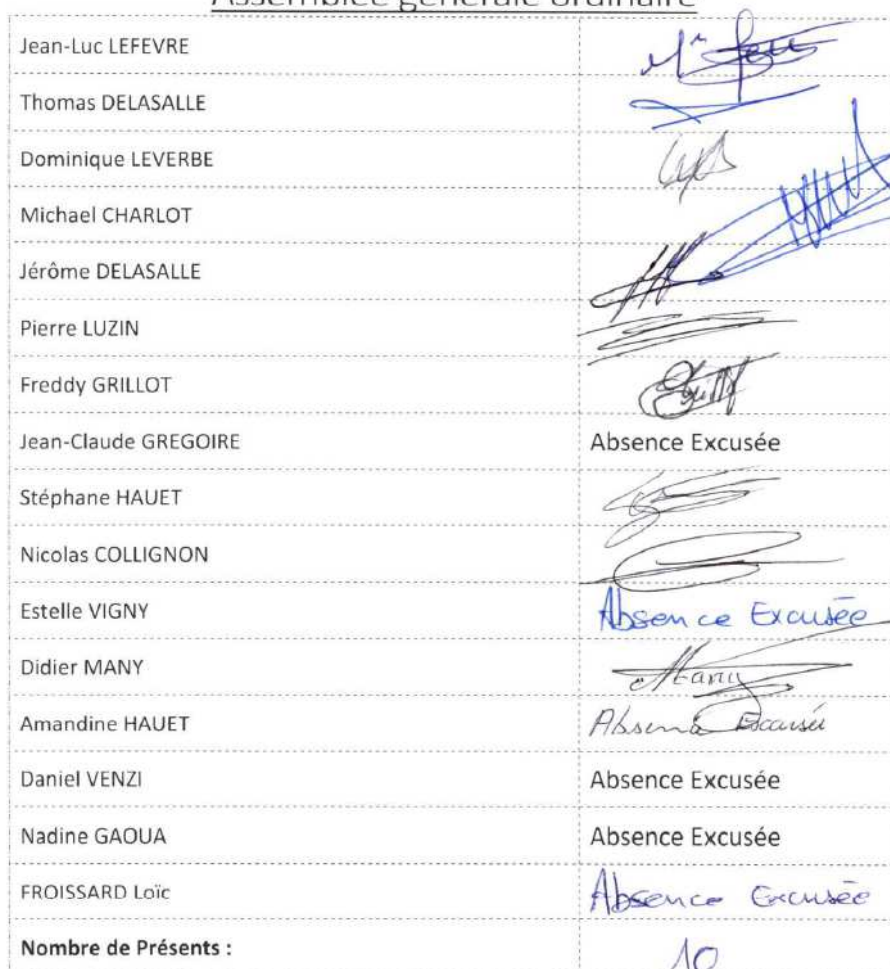 Assemblée générale ordinaire
Jean-Luc LEFEVRE
Thomas DELASALLE
Dominique LEVERBE
Michael CHARLOT
Jérôme DELASALLE
Pierre LUZIN
Freddy GRILLOT
Jean-Claude GREGOIRE Absence Excusée
Stéphane HAUET
Nicolas COLLIGNON
Estelle VIGNY Absence Excusée
Didier MANY Many
Amandine HAUET Absence Excusée
Daniel VENZI Absence Excusée
Nadine GAOUA Absence Excusée
FROISSARD Loïc Absence Excusée
Nombre de Présents : 10